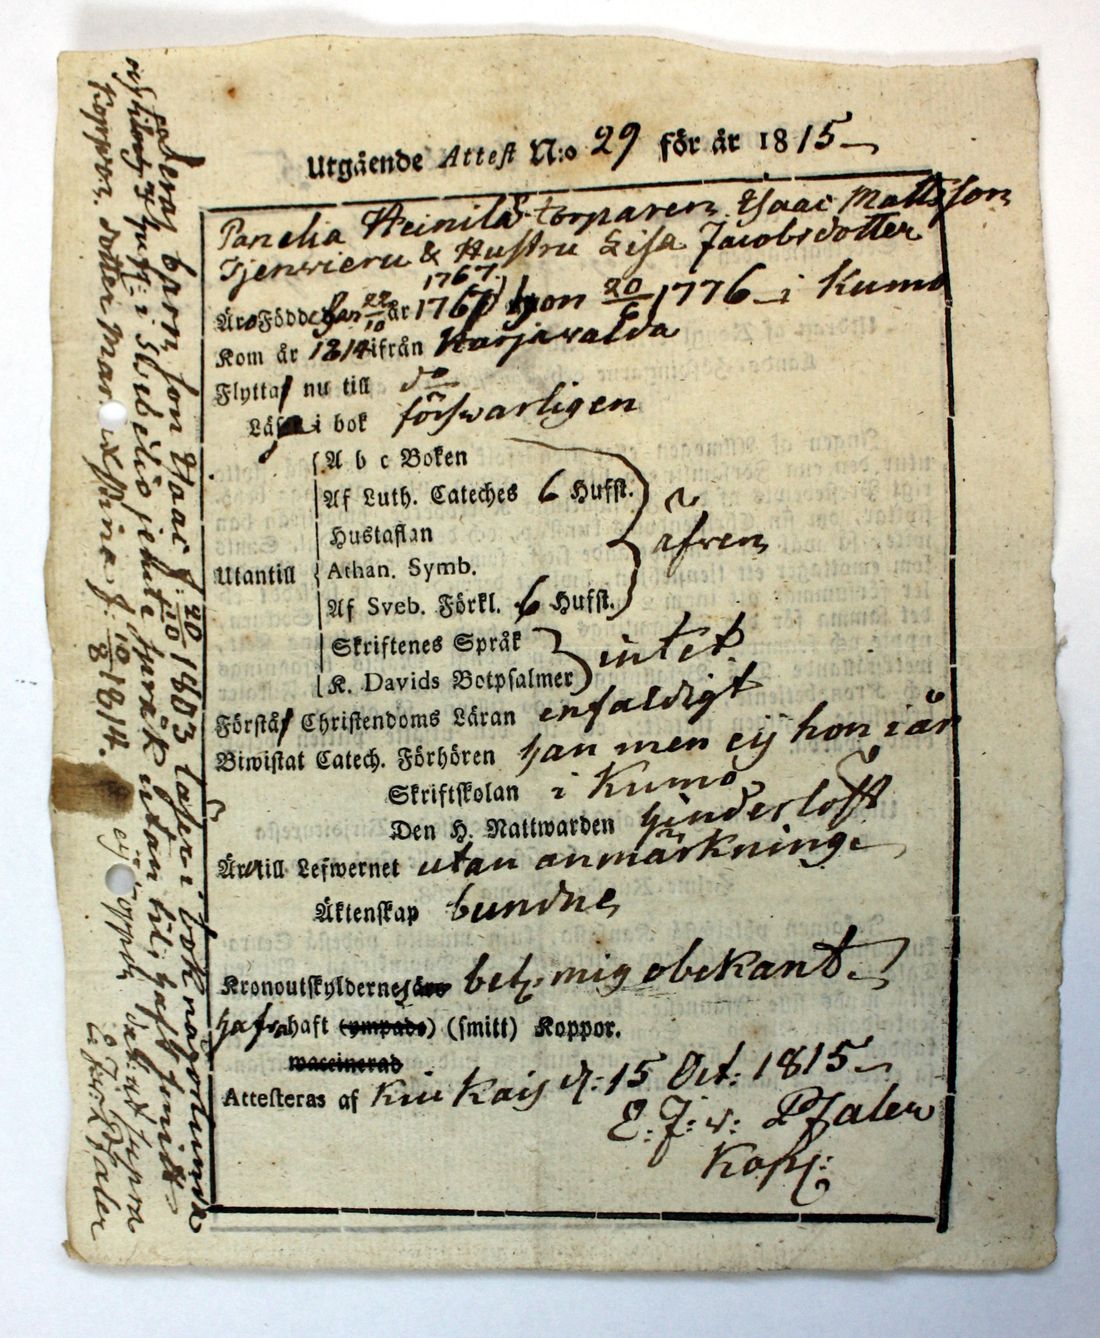 Utgående Attest N:o 29 för år 1815
Panelia Heinilä torparen Isaac Mattsson
& Hustru Lisa Jacobsdotter
1767
Äro Födde han 22/10 år 1767 hon 20/6 1776 i Kumo
Kom år 1814 ifrån Harjawalda
Flytta nu till do
Läsa i bok förswarligen
Utantill
A b c Boken
Af Luth. Cateches 6 Hufst.
Hustaflan
Athan. Symb.
Af Sveb. Förkl. 6 Hufst.
äfven
Skriftenes Språk
K. Davids Botpsalmer
intet
Förstå Christendoms Läran enfaldigt
Biwistat Catech. Förhören han men ej hon i år
Skriftskolan i Kumo
Den H. Nattwarden hinderlöst
Äro till Lefwernet utan anmärkning
Äktenskap bundne
Kronoutskylderne äro bet. mig obekant
hafva haft (ympade) (smitt) Koppor.
waccinerad
Attesteras af Kiukais d: 15 Oct: 1815
E. J. v. Pfaler
Kapl:
deras barn son Isaac f: 20/10 1803 läser i bok någorlunda
i Swebelio utan till, haft smitt
Koppor. dotter Maria f: 10/8 1814. ej koppor
Pfaler